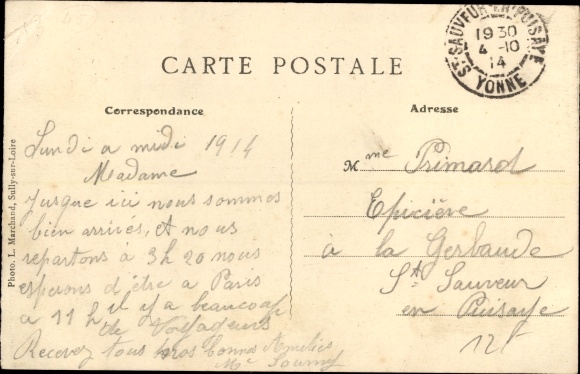 ST-SAUVEUR-EN-PUISAYE
1930
4 -10
14
YONNE
CARTE POSTALE
Correspondance
Adresse
Photo. L. Marchand, Sully-sur-Loire
Lundi a midi 1914
Madame
Jusque ici nous sommes
bien arrivés, et nous
repartons à 3h 20 nous
esperons d'être a Paris
a 11 h il y a beaucoup
de Voyageurs
Recevez tous nos bonnes Amitiés
Mme Primard
Epicière
à la Gerbaude
St Sauveur
en Puisaye